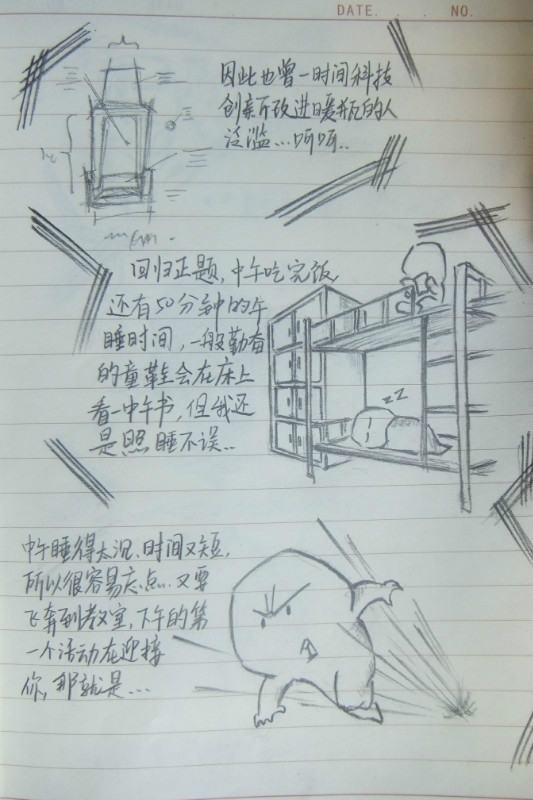 DATE. . . NO.
因此也曾一时间科技
创新所改进暖瓶的人
泛滥...呵呵..
回归正题,中午吃完饭
还有50分钟的午
睡时间,一般勤奋
的童鞋会在床上
看一中午书,但我还
是照睡不误..
ZZ
中午睡得太沉、时间又短,
所以很容易忘点...又要
飞奔到教室,下午的第
一个活动在迎接
你,那就是...